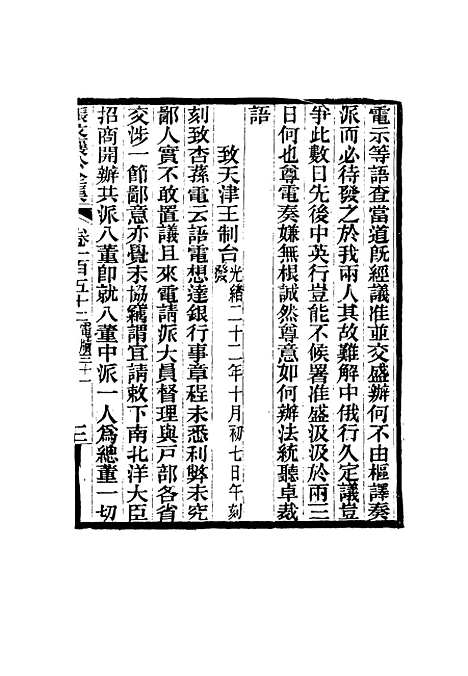 電示等語查當道既經議准並交盛辦何不由樞譯奏
派而必待發之於我兩人其故難解中俄行久定議豈
爭此數日先後中英行豈能不候署准盛汲汲於兩三
日何也尊電奏嫌無根誠然尊意如何辦法統聽卓裁
語
致天津王制台光緒二十二年十月初七日午刻發
刻致杏蓀電云語電想達銀行事章程未悉利弊未究
鄙人實不敢置議且來電請派大員督理與戶部各省
交涉一節鄙意亦覺未協竊謂宜請敕下南北洋大臣
招商開辦共派八董卽就八董中派一人爲總董一切
張文襄公全集 卷一百五十二 電牘三十一 三